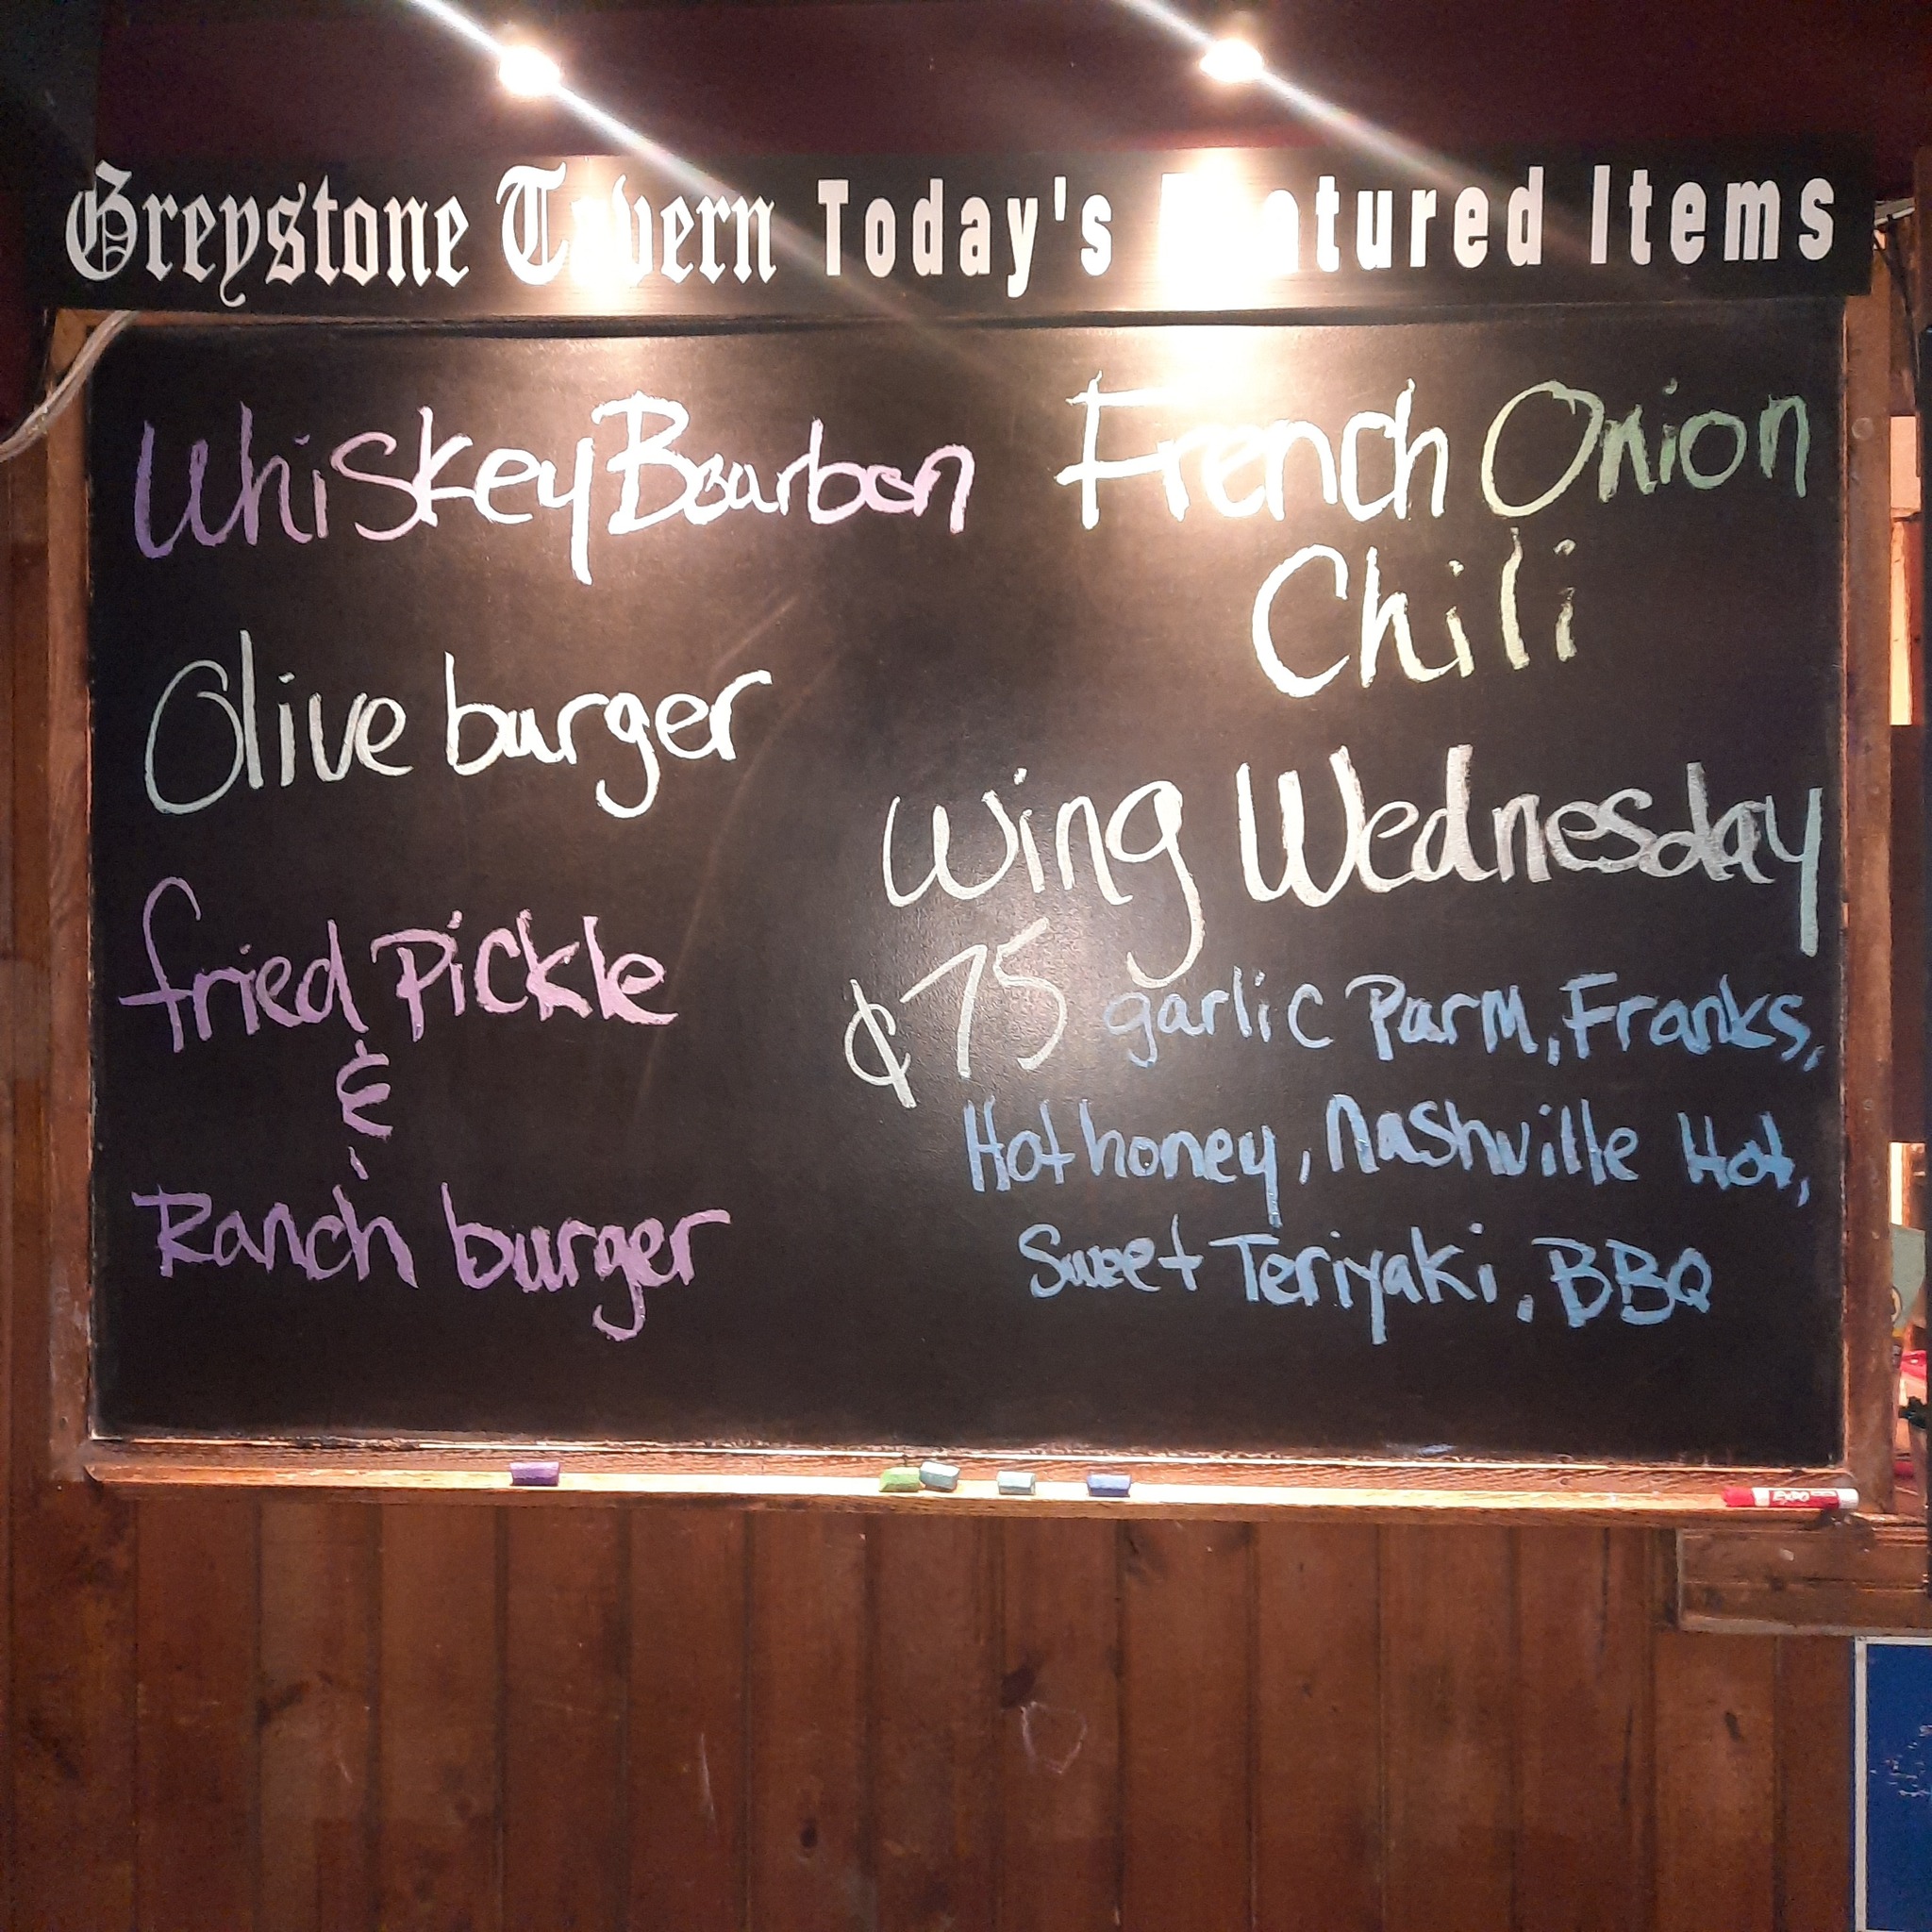 Greystone Tavern Today's Featured Items
Whiskey Bourbon
Olive burger
fried Pickle
&
Ranch burger
French Onion
Chili
Wing Wednesday
¢75 garlic Parm, Franks,
Hot honey, Nashville Hot,
Sweet Teriyaki, BBQ
EXPO